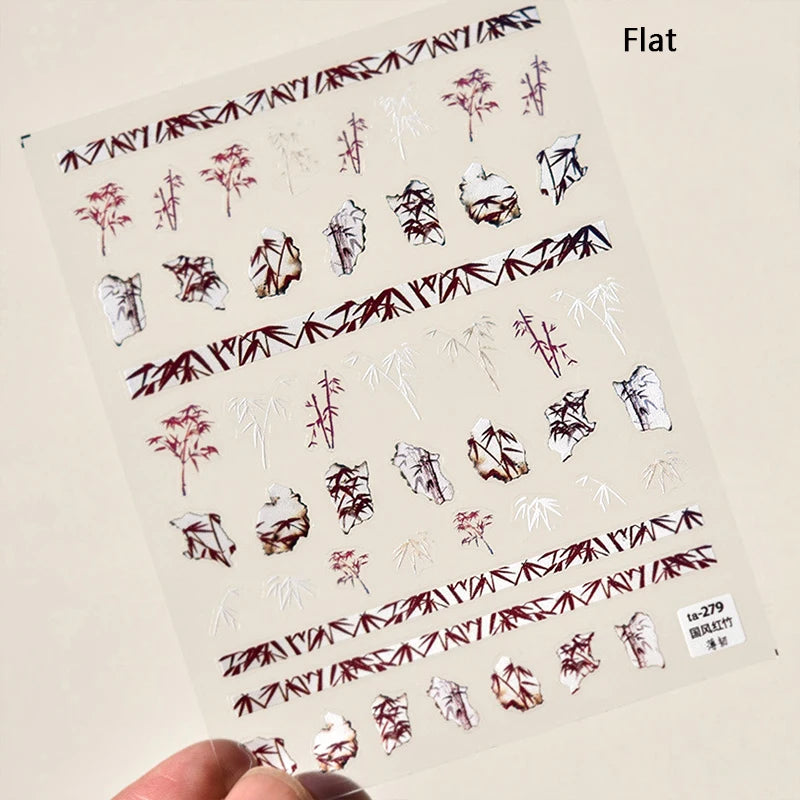 Flat
ta-279
国风红竹
薄韧